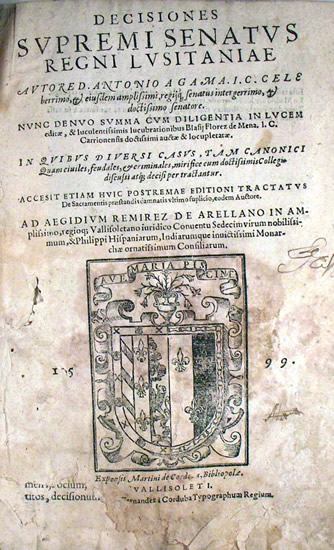 DECISIONES
SVPREMI SENATVS
REGNI LVSITANIAE
AVTORE D. ANTONIO A GAMA. I. C. CELE
berrimo, & eiusdem amplissimi, regijq; senatus integerrimo, &
doctissimo senatore.
NVNC DENVO SVMMA CVM DILIGENTIA IN LVCEM
editæ, & luculentissimis lucubrationibus Blasij Florez de Mena, I. C.
Carrionensis doctissimi auctæ & locupletatæ.
IN QVIBVS DIVERSI CASVS, TAM CANONICI
Quam ciuiles, feudales, & criminales, mirifice cum doctissimis Collegis
discussi atq; decisi per tractantur.
ACCESIT ETIAM HVIC POSTREMAE EDITIONI TRACTATVS
De Sacramentis præstandis damnatis vltimo suplicio, eodem Auctore.
AD AEGIDIVM REMIREZ DE ARELLANO IN AM-
plissimo, regioq; Vallisoletano iuridico Conuentu Sedecim virum nobilissi-
mum, & Philippi Hispaniarum, Indiarumque inuictissimi Monar-
chæ ornatissimum Consiliarum.
MARIA
CINE
15 99.
Expensis Martini de Bibliopolæ.
VALLISOLETI.
ernandez à Corduba Typographum Regium.
ocium,
titos, decisionum